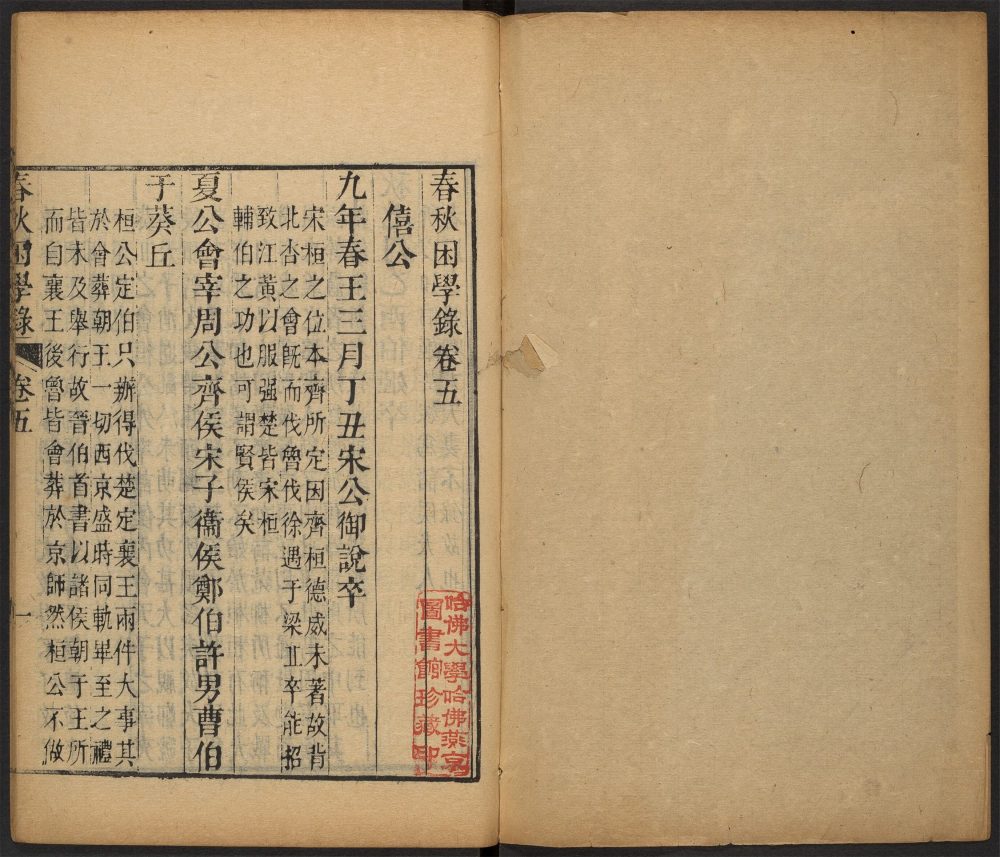 春秋困學錄卷五
僖公
九年春王三月丁丑宋公御說卒
宋桓之位本齊所定因齊桓德威未著故背
北杏之會旣而伐魯伐徐遇于梁丘卒能招
致江黃以服强楚皆宋桓
輔伯之功也可謂賢侯矣
夏公會宰周公齊侯宋子衞侯鄭伯許男曹伯
于葵丘
桓公定伯只辦得伐楚定襄王兩件大事其
於會葬朝王一切西京盛時同軌畢至之禮
皆未及舉行故晉伯首書以諸侯朝于王所
而自襄王後魯皆會葬於京師然桓公不做
春秋困學錄 卷五 一
哈佛大學哈佛燕京
圖書館珍藏印